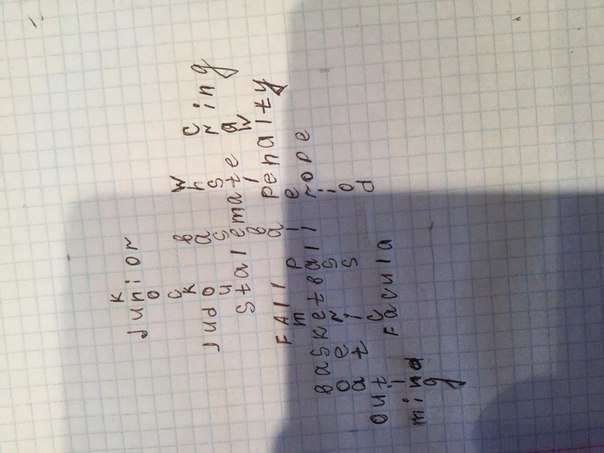 k
Junior
o
c W
k B h c
Judo a s ring
u s t a
Stalemate i w
B Penalty
FAll P a e
m l rope
BASketBall i
o e r s o
a t i s d
out c
i Facula
mind
g